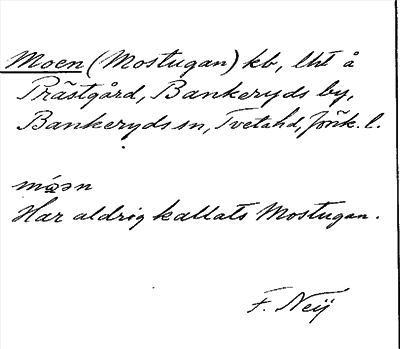 Moen (Mostugan) kb, lht å
Prästgård, Bankeryds by,
Bankeryds sn, Tvetahd, Jönk. l.
Har aldrig kallats Mostugan.
F. Neij